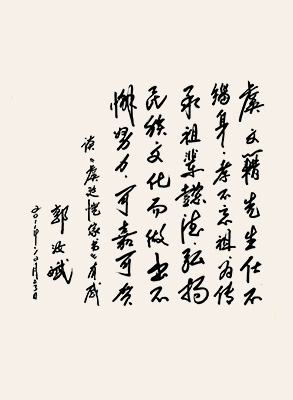 虞文籍先生仕不
缁身·孝不忘祖·为传
承祖辈懿德·弘扬
民族文化而做出不
懈努力·可嘉可贺
读《虞廷恺家书》有感
郭汝斌
二〇一一年·八月二十日